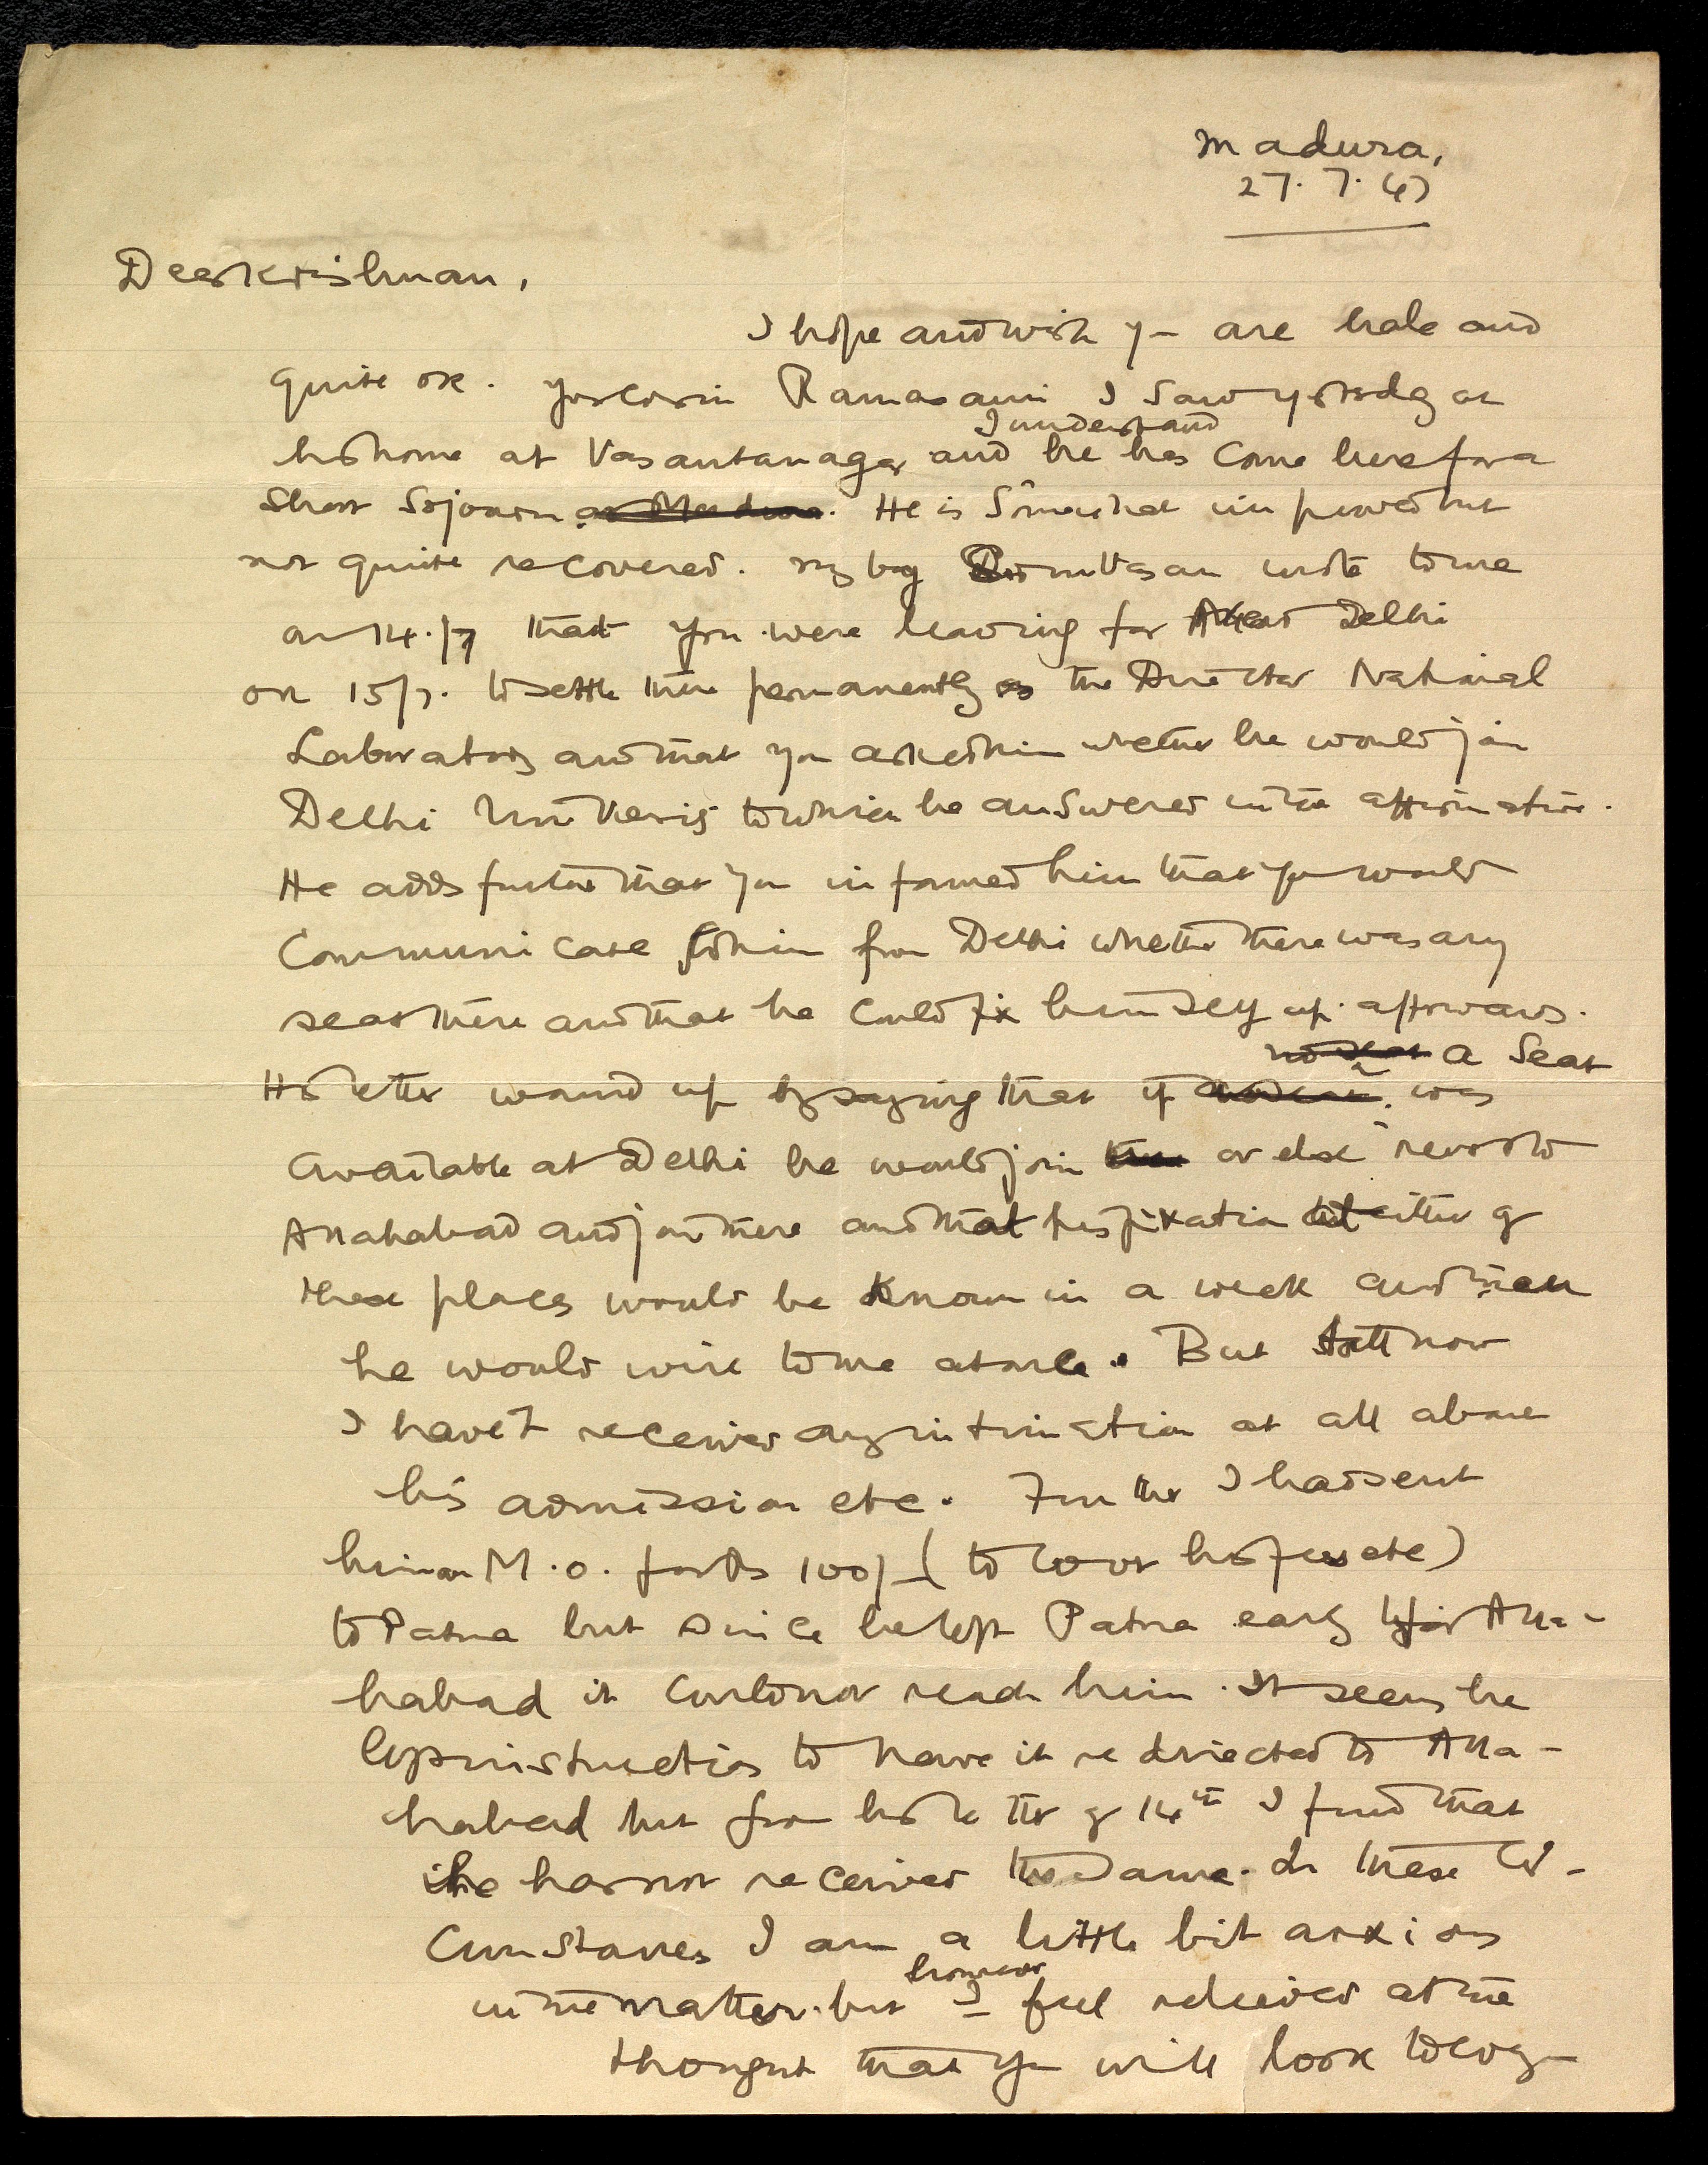 Madura,
27.7.47
Dear Krishnan,
I hope and wish you are hale and
quite ok. Your cousin Ramasami I saw yesterday at
his home at Vasantanagar and I understand he has come here for a
short sojourn at Madura. He is somewhat improved but
not quite recovered. My boy Srinivasan wrote to me
on 14/7 that you were leaving for Delhi
on 15/7. to settle there permanently as the Director National
Laboratory and that you asked him whether he would join
Delhi University to which he answered in the affirmative.
He adds further that you informed him that you would
communicate to him from Delhi whether there was any
seat there and that he could fix himself up afterwards.
His letter wound up by saying that if no seat a seat was
available at Delhi he would join there or else revert to
Allahabad and join there and that his fixation at either of
these places would be known in a week and then
he would wire to me at once. But till now
I haven't received any intimation at all about
his admission etc. Further I had sent
him an M.O. for Rs 100/- (to cover his fees etc)
to Patna but since he left Patna early for Alla-
habad it could not reach him. It seems he
left instructions to have it redirected to Alla-
habad but from his letter of 14th I find that
he has not received the same. In these cir-
cumstances I am a little bit anxious
in the matter. but however I feel relieved at the
thought that you will look to every-